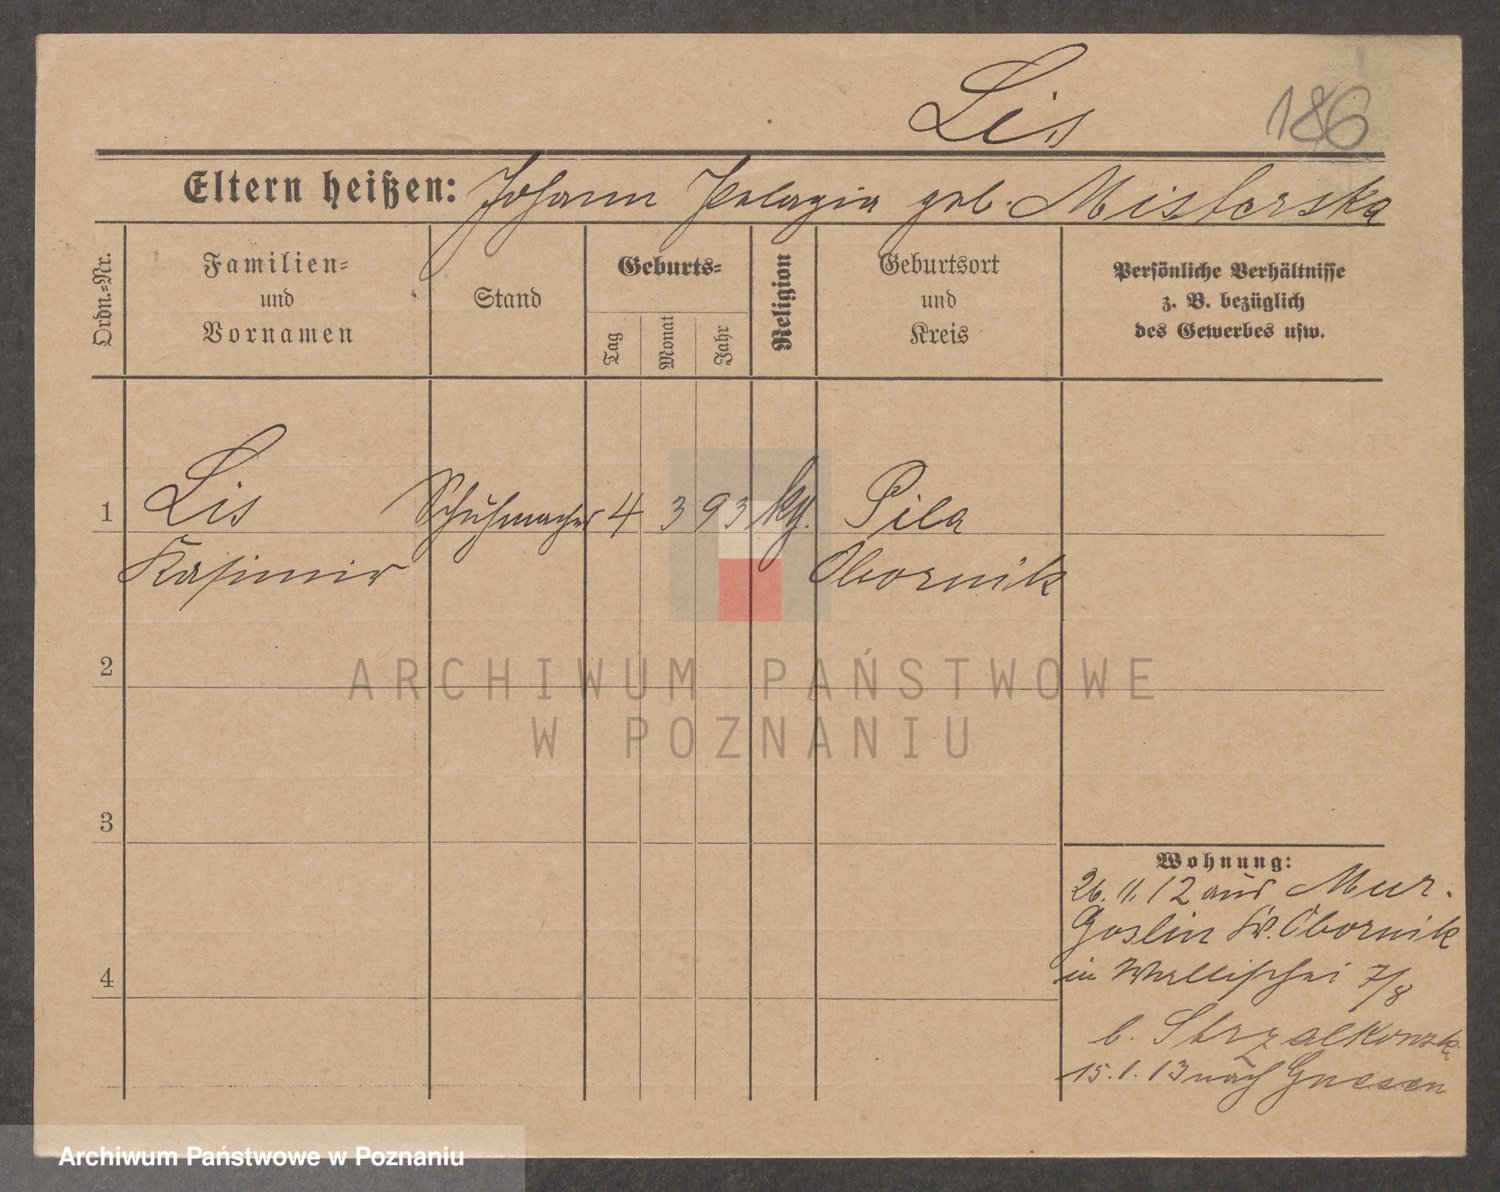 Lis 186
Eltern heißen: Johann Pelagia geb. Misterska
Ordn.-Nr.
Familien-
und
Vornamen
Stand
Geburts-
Tag
Monat
Jahr
Religion
Geburtsort
und
Kreis
Persönliche Verhältnisse
z. B. bezüglich
des Gewerbes usw.
1 Lis Schuhmacher 4 3 93 kg. Pila
Kasimir Obornik
2
3
4
Wohnung:
26. 11. 12 aus Mur.
Goslin Kr. Obornik
in Wallischei 7/8
b. Strzalkowski
15. 1. 13 nach Gnesen
ARCHIWUM PAŃSTWOWE
W POZNANIU
Archiwum Państwowe w Poznaniu